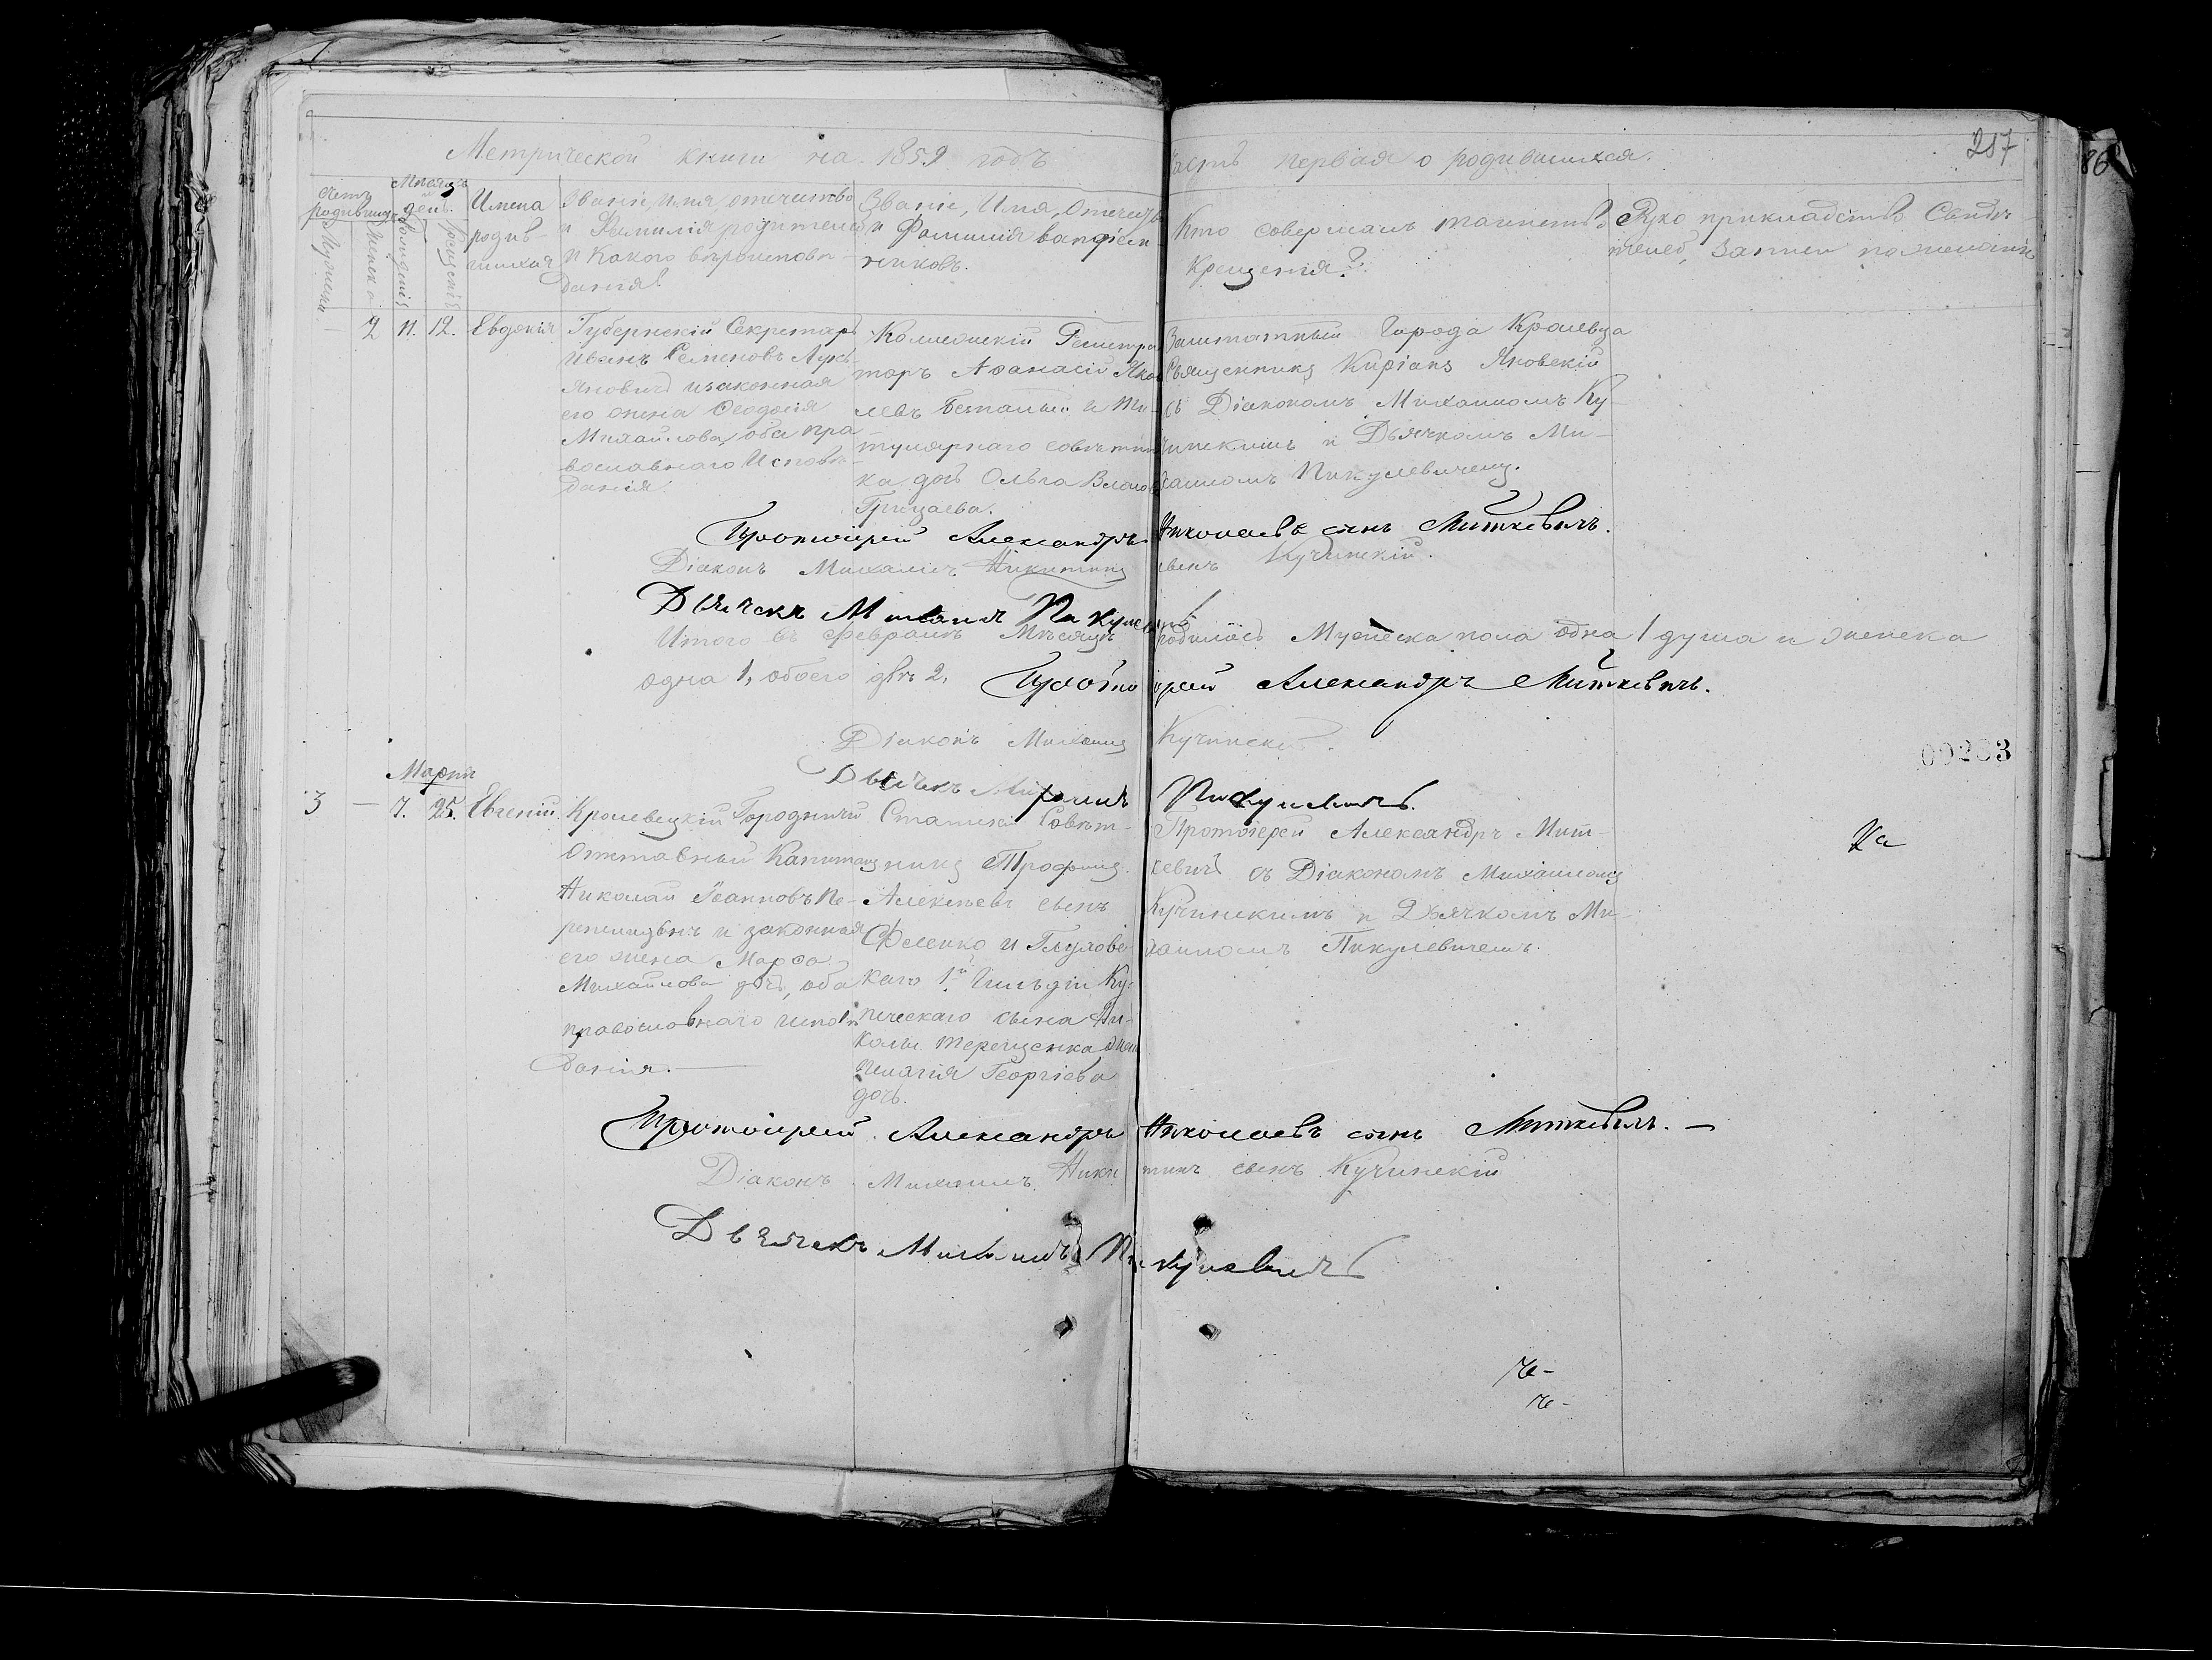 Метрической книги на 1859 годъ часть первая о родившихся.
217
86
Счетъ родившихся
Мѣсяцъ и день.
Имена родив-
шихся
Званіе, имя, отечество
и Фамилія родителей
и Какого вѣроисповѣ-
данія?
Званіе, Имя, Отечество
и Фамилія воспріем-
никовъ.
Кто совершалъ таинство
Крещенія?
Руко прикладство Свидѣ-
телей записи по желанію
Мужеска
Женска
Рожденія
Крещенія
2 11. 12. Евдокія
Губернскій Секретарь
Иванъ Семеновъ Лукь-
яновичъ и законная
его жена Феодосія
Михайлова, оба пра-
вославнаго Исповѣ-
данія
Коллежскій Регистра
торъ Аѳанасій Яков
левъ и Ти-
тулярнаго совѣтни
ка дочь Ольга
Грицаева.
Заштатный Города Кролевца
Священникъ Кипріанъ Яновскій
съ Діакономъ Михаиломъ Ку-
чинскимъ и Дьячкомъ Ми-
хаиломъ Пикулевичемъ.
Протоіерей Александръ Николаевъ сынъ Миткевичъ.
Діаконъ Михаилъ Никитинъ сынъ Кучинскій.
Дьячекъ Михаилъ Пикулевичъ
Итого въ Февралѣ Мѣсяцѣ родилось Мужеска пола одна 1 душа и женска
одна 1, обоего двѣ 2, Протоіерей Александръ Миткевичъ.
Діаконъ Михаилъ Кучинскій.
Дьячекъ Михаилъ Пикулевичъ.
00283
Мартъ
3 — 7. 25. Евгеній
Кролевецкій Городничій
Отставный Капитанъ
Николай Іоанновъ Пе-
репелицынъ и законная
его жена Марѳа
Михайлова дочь, оба
православнаго исповѣ
данія.
Статскій Совѣт-
никъ Трофимъ
Алексѣевъ сынъ
и Глухов-
скаго 1й Гильдіи Ку-
печескаго сына Ни-
колы Терещенка жена
Пелагія Георгіева
дочь.
Протоіерей Александръ Мит-
кевичъ съ Діакономъ Михаиломъ
Кучинскимъ и Дьячкомъ Ми-
хаиломъ Пикулевичемъ.
Ка
Протоіерей Александръ Николаевъ сынъ Миткевичъ. —
Діаконъ Михаилъ Никитинъ сынъ Кучинскій
Дьячекъ Михаилъ Пикулевичъ